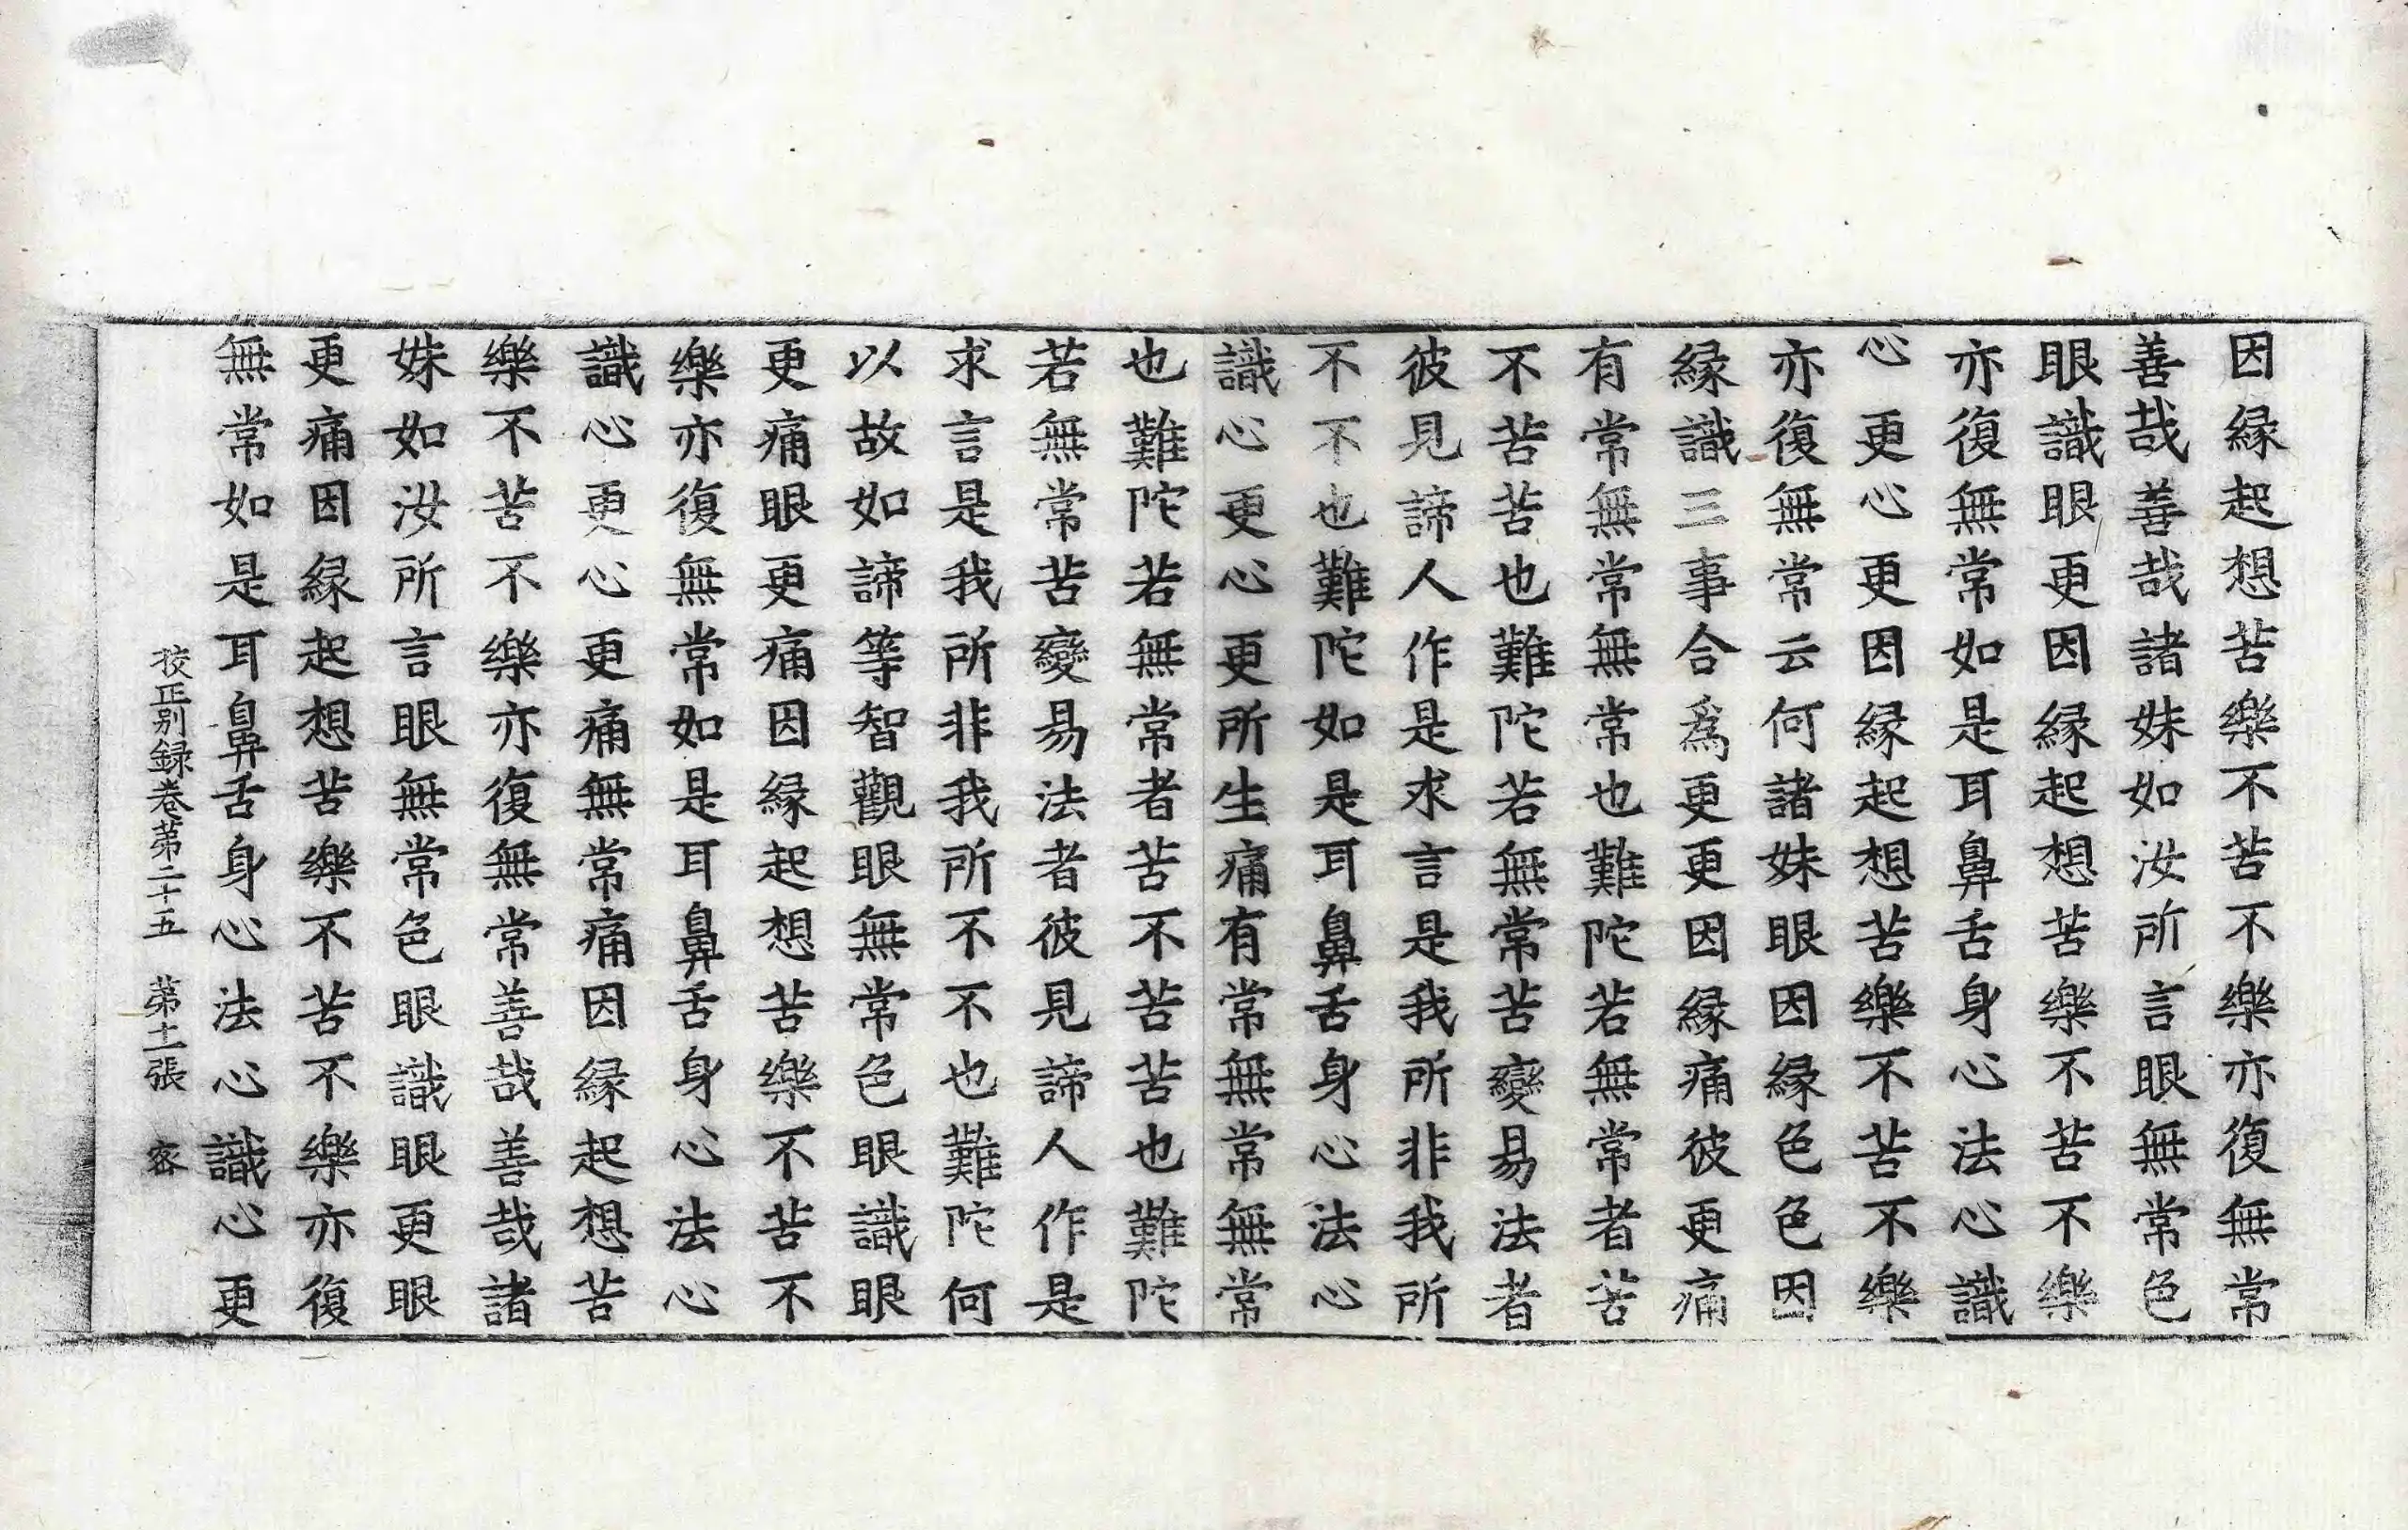 因縁起想苦樂不苦不樂亦復無常
善哉善哉諸妹如汝所言眼無常色
眼識眼更因縁起想苦樂不苦不樂
亦復無常如是耳鼻舌身心法心識
心更心更因縁起想苦樂不苦不樂
亦復無常云何諸妹眼因縁色色因
縁識三事合爲更更因縁痛彼更痛
有常無常無常也難陀若無常者苦
不苦苦也難陀若無常苦變易法者
彼見諦人作是求言是我所非我所
不不也難陀如是耳鼻舌身心法心
識心更心更所生痛有常無常無常
也難陀若無常者苦不苦苦也難陀
若無常苦變易法者彼見諦人作是
求言是我所非我所不不也難陀何
以故如諦等智觀眼無常色眼識眼
更痛眼更痛因縁起想苦樂不苦不
樂亦復無常如是耳鼻舌身心法心
識心更心更痛無常痛因縁起想苦
樂不苦不樂亦復無常善哉善哉諸
妹如汝所言眼無常色眼識眼更眼
更痛因縁起想苦樂不苦不樂亦復
無常如是耳鼻舌身心法心識心更
校正别録卷苐二十五 苐十一張 容